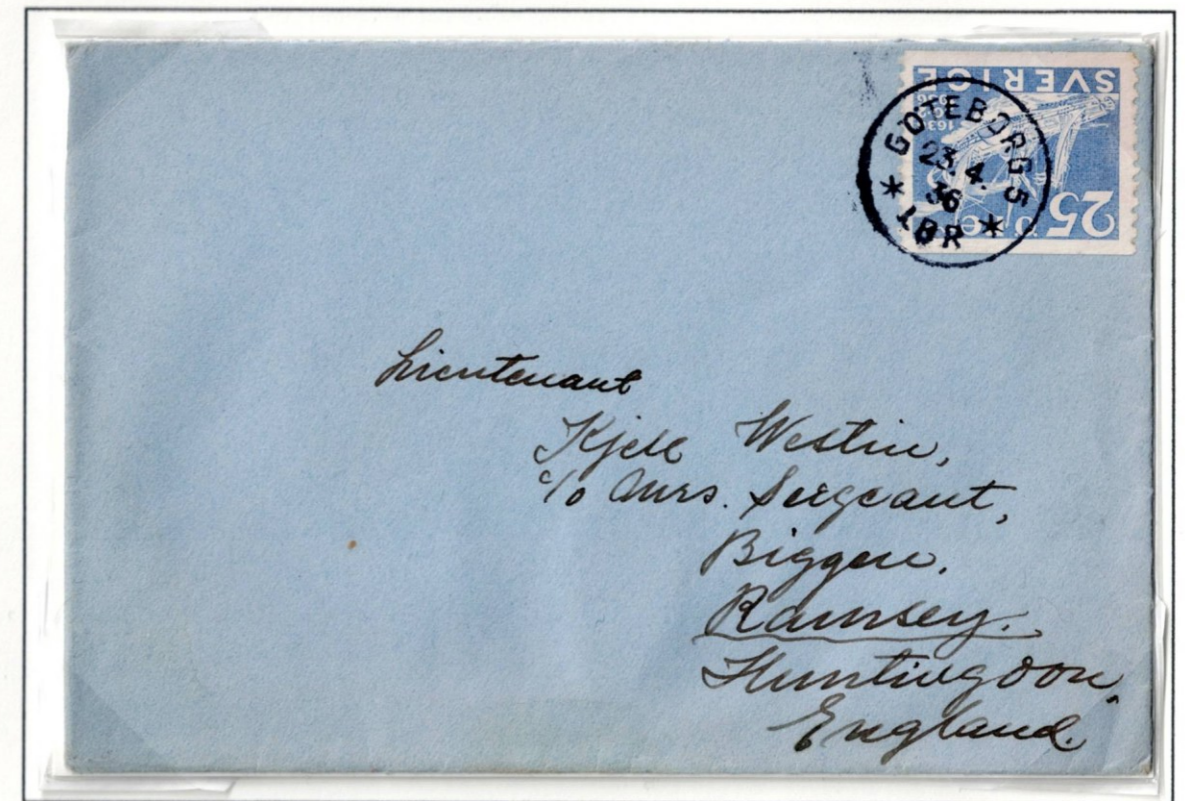 SVERIGE
1636
1936
25 öre
GÖTEBORG 5
23.4.
36
LBR
Lieutenant
Kjell Westin,
c/o Mrs. Sergeant,
Biggen.
Ramsey.
Huntingdon,
England.